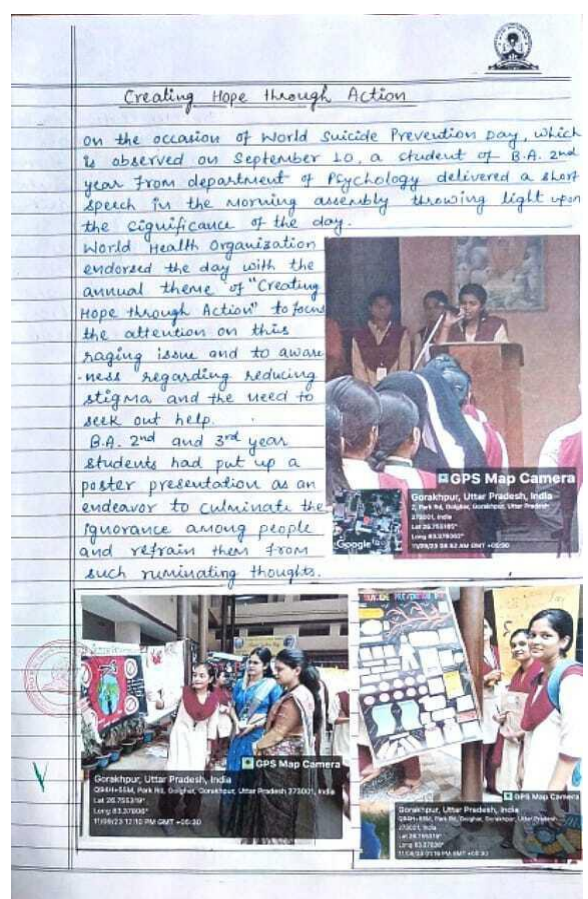 Creating Hope through Action
On the occasion of World Suicide Prevention Day, which
is observed on September 10, a student of B.A. 2nd
year from department of Psychology delivered a short
speech in the morning assembly throwing light upon
the significance of the day.
World Health Organization
endorsed the day with the
annual theme of "Creating
Hope through Action" to focus
the attention on this
raging issue and to aware
-ness regarding reducing
stigma and the need to
seek out help.
B.A. 2nd and 3rd year
students had put up a
poster presentation as an
endeavor to culminate the
ignorance among people
and refrain them from
such ruminating thoughts.
GPS Map Camera
Gorakhpur, Uttar Pradesh, India
2, Park Rd, Golghar, Gorakhpur, Uttar Pradesh
273001, India
Google
GPS Map Camera
Gorakhpur, Uttar Pradesh, India
Park Rd, Golghar, Gorakhpur, Uttar Pradesh 273001, India
Lat 26.755319°
11/09/23 12:10 PM GMT +05:30
GPS Map Camera
Gorakhpur, Uttar Pradesh, India
Park Rd, Golghar, Gorakhpur, Uttar Pradesh
273001, India